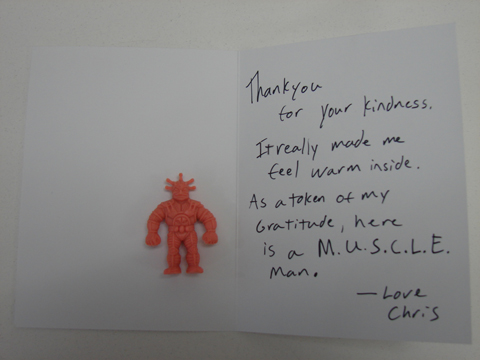 Thankyou
for your kindness.
It really made me
feel warm inside.
As a token of my
Gratitude, here
is a M.U.S.C.L.E.
Man.
—Love
Chris